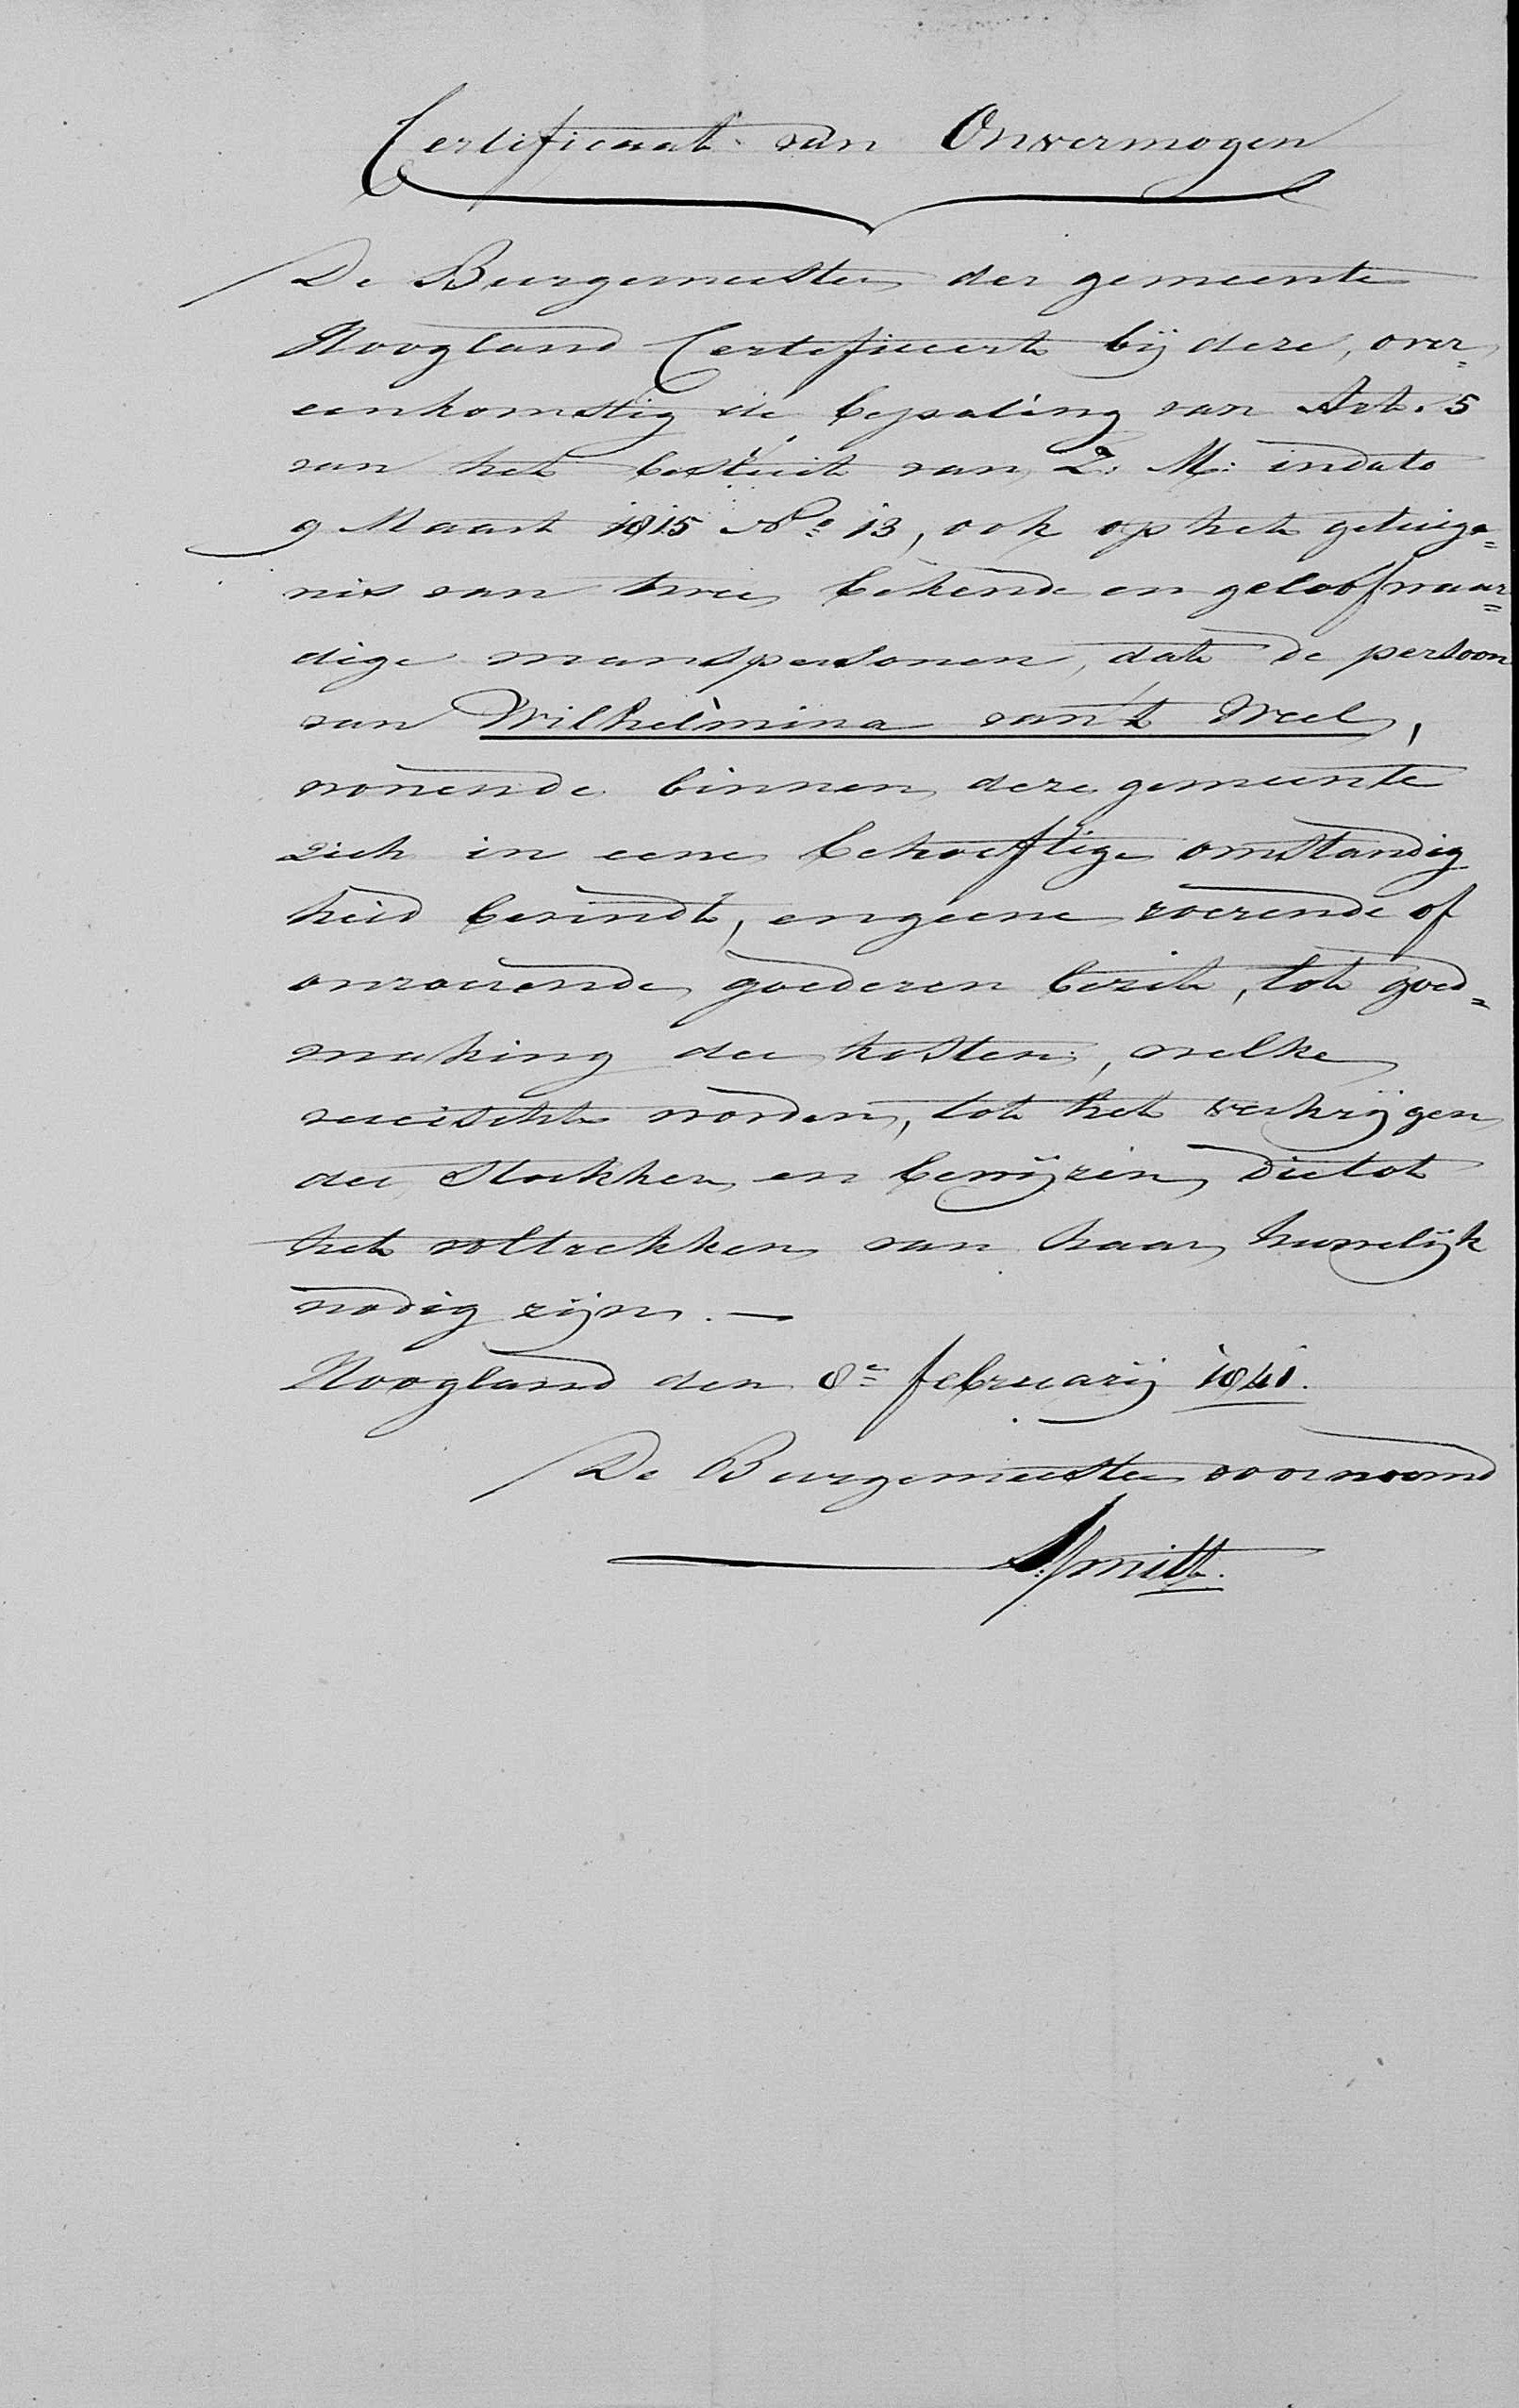 Certificaat van Onvermogen
De Burgemeester der gemeente
Hoogland Certificeert bij deze, over=
eenkomstig de bepaling van Art. 5
van het besluit van Z: M: in dato
9 Maart 1815 No 13, ook op het getuige=
nis van twee bekende en geloofwaar=
dige manspersonen, dat de persoon
van Wilhelmina van 't Weel,
wonende binnen deze gemeente
zich in eene behoeftige omstandig
heid bevindt, en geene roerende of
onroerende goederen bezit, tot goed=
making der kosten, welke
vereischt worden, tot het verkrijgen
der Stukken en bewijzen, die tot
het voltrekken van haar huwelijk
nodig zijn. —
Hoogland den 8e februarij 1841.
De Burgemeester voornoemd
Smitt.